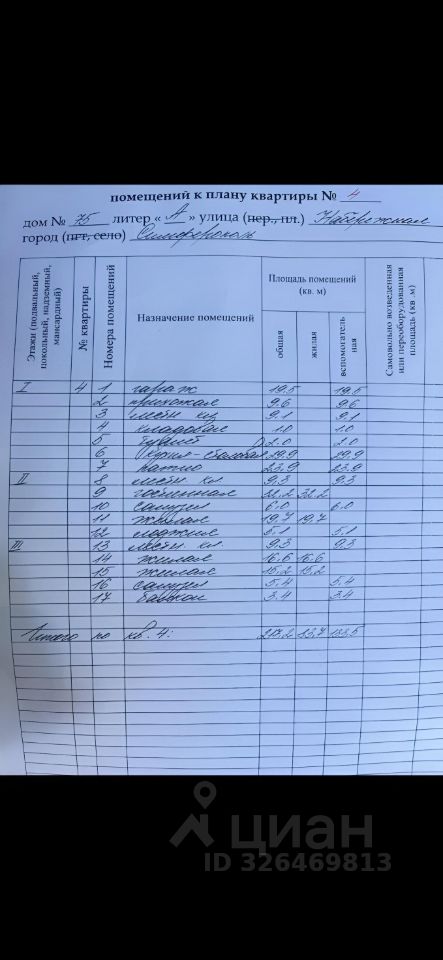 помещений к плану квартиры № 4
дом № 75 литер « А » улица (пер., пл.) Набережная
город (пгт, село) Симферополь
Этажи (подвальный, цокольный, надземный, мансардный) № квартиры Номера помещений Назначение помещений Площадь помещений (кв. м) Самовольно возведенная или переоборудованная площадь (кв .м)
общая жилая вспомогательная
I 4 1 гараж 19,5 19,5
2 прихожая 9,6 9,6
3 лестн кл 9,1 9,1
4 кладовая 1.0 1.0
5 туалет 2.0 2.0
6 кухня-столовая 29,9 29,9
7 патио 23,9 23,9
II 8 лестн кл 9,3 9,3
9 гостинная 32,2 32,2
10 санузел 6.0 6.0
11 жилая 19,7 19,7
12 лоджия 5,1 5,1
III 13 лестн. кл. 9,3 9,3
14 жилая 16,6 16,6
15 жилая 15,2 15,2
16 санузел 5,4 5,4
17 балкон 3,4 3,4
Итого по кв. 4: 217,2 133,5
циан
ID 326469813